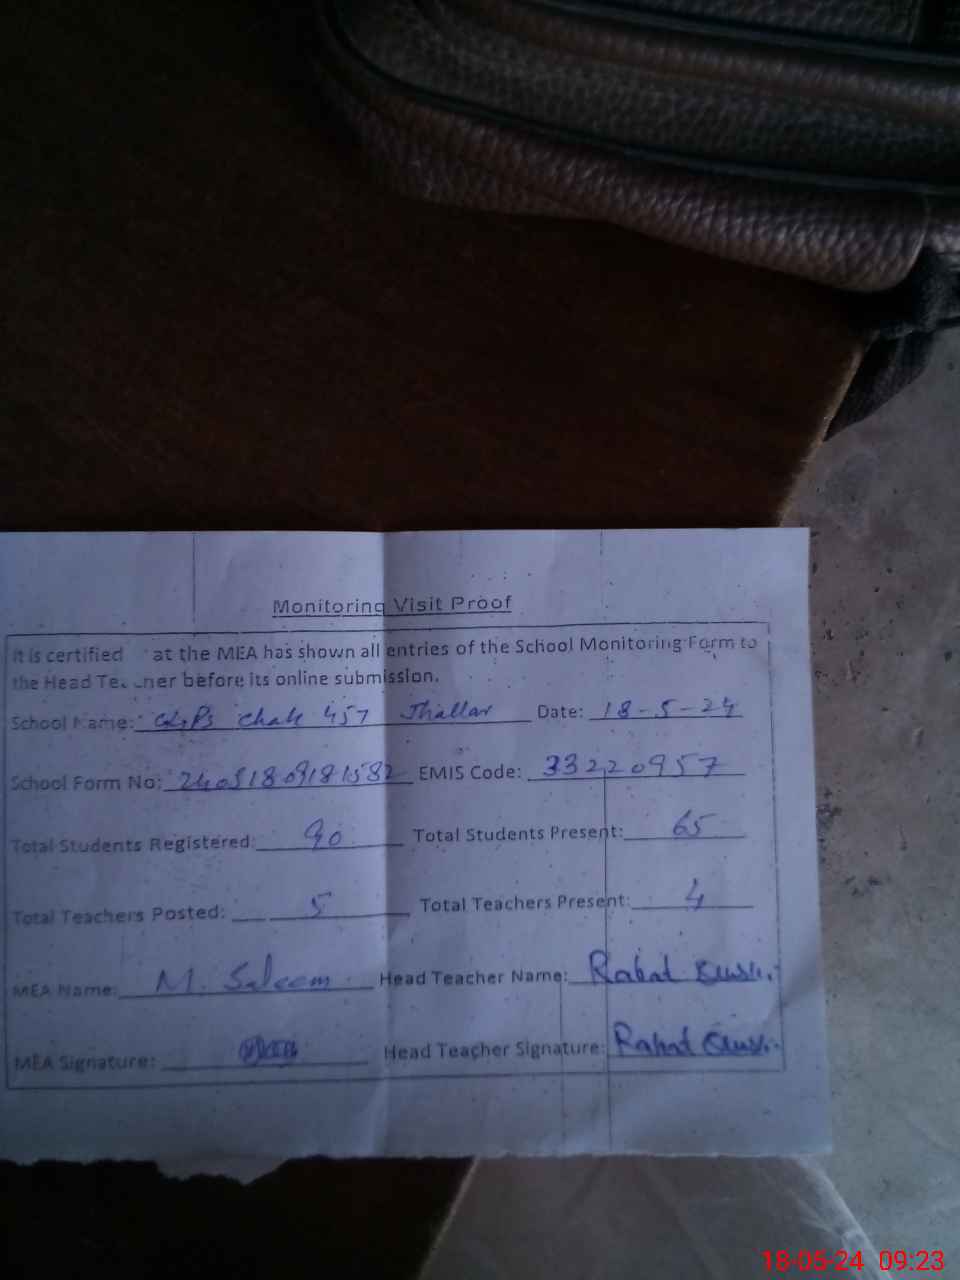 Monitoring Visit Proof
It is certified at the MEA has shown all entries of the School Monitoring Form to
the Head Teacher before its online submission.
School Name: GGPS Chak 457 Jhallar Date: 18-5-24
School Form No: 24051809181582 EMIS Code: 33220957
Total Students Registered: 90 Total Students Present: 65
Total Teachers Posted: 5 Total Teachers Present: 4
MEA Name: M. Saleem Head Teacher Name: Rahat
MEA Signature: Head Teacher Signature: Rahat
18-05-24 09:23